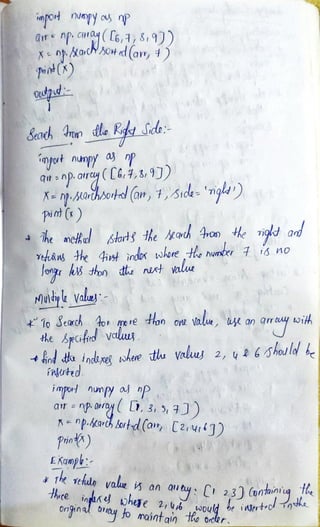 import numpy as np
arr = np.array([6,7,8,9])
x = np.searchsorted(arr, 7)
print(x)
output:-
1
Search from the Right Side:-
import numpy as np
arr = np.array([6,7,8,9])
x = np.searchsorted(arr, 7, side= 'right')
print(x)
* The method starts the search from the right and
returns the first index where the number 7 is no
longer less than the next value
Multiple Values:-
* To Search for more than one value, use an array with
the specified values.
* find the Indexes where the values 2, 4 & 6 should be
inserted.
import numpy as np
arr = np.array([1, 3, 5, 7])
x = np.searchsorted(arr, [2,4,6])
print(x)
Example:-
* The return value is an array: [1 2 3] containing the
three indexes where 2,4,6 would be inserted in the
original array to maintain the order.